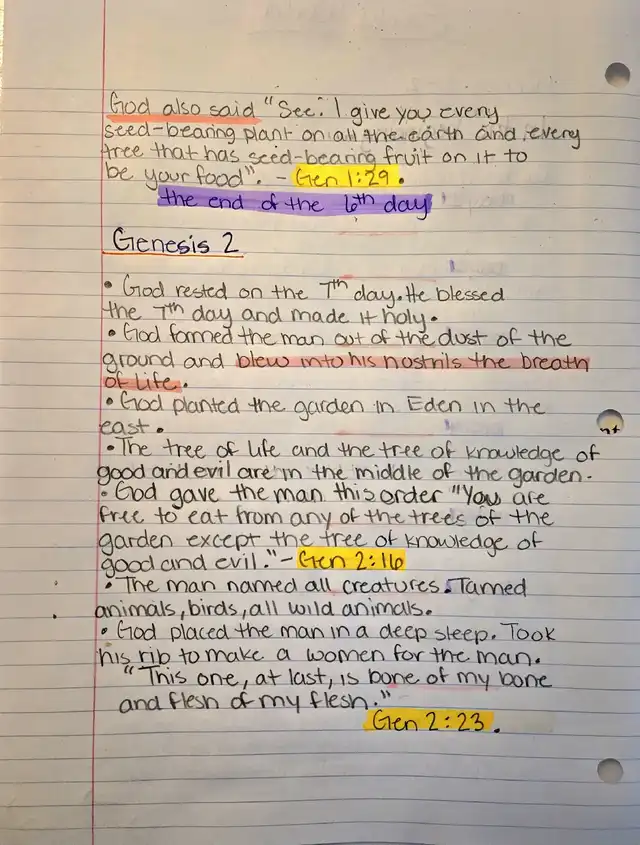 God also said "See: I give you every
seed-bearing plant on all the earth and every
tree that has seed-bearing fruit on it to
be your food". - Gen 1:29.
the end of the 6th day
Genesis 2
• God rested on the 7th day. He blessed
the 7th day and made it holy.
• God formed the man out of the dust of the
ground and blew into his nostrils the breath
of life.
• God planted the garden in Eden in the
east.
• The tree of life and the tree of knowledge of
good and evil are in the middle of the garden.
• God gave the man this order "You are
free to eat from any of the trees of the
garden except the tree of knowledge of
good and evil." - Gen 2:16
• The man named all creatures. Tamed
animals, birds, all wild animals.
• God placed the man in a deep sleep. Took
his rib to make a women for the man.
"This one, at last, is bone of my bone
and flesh of my flesh."
Gen 2:23.